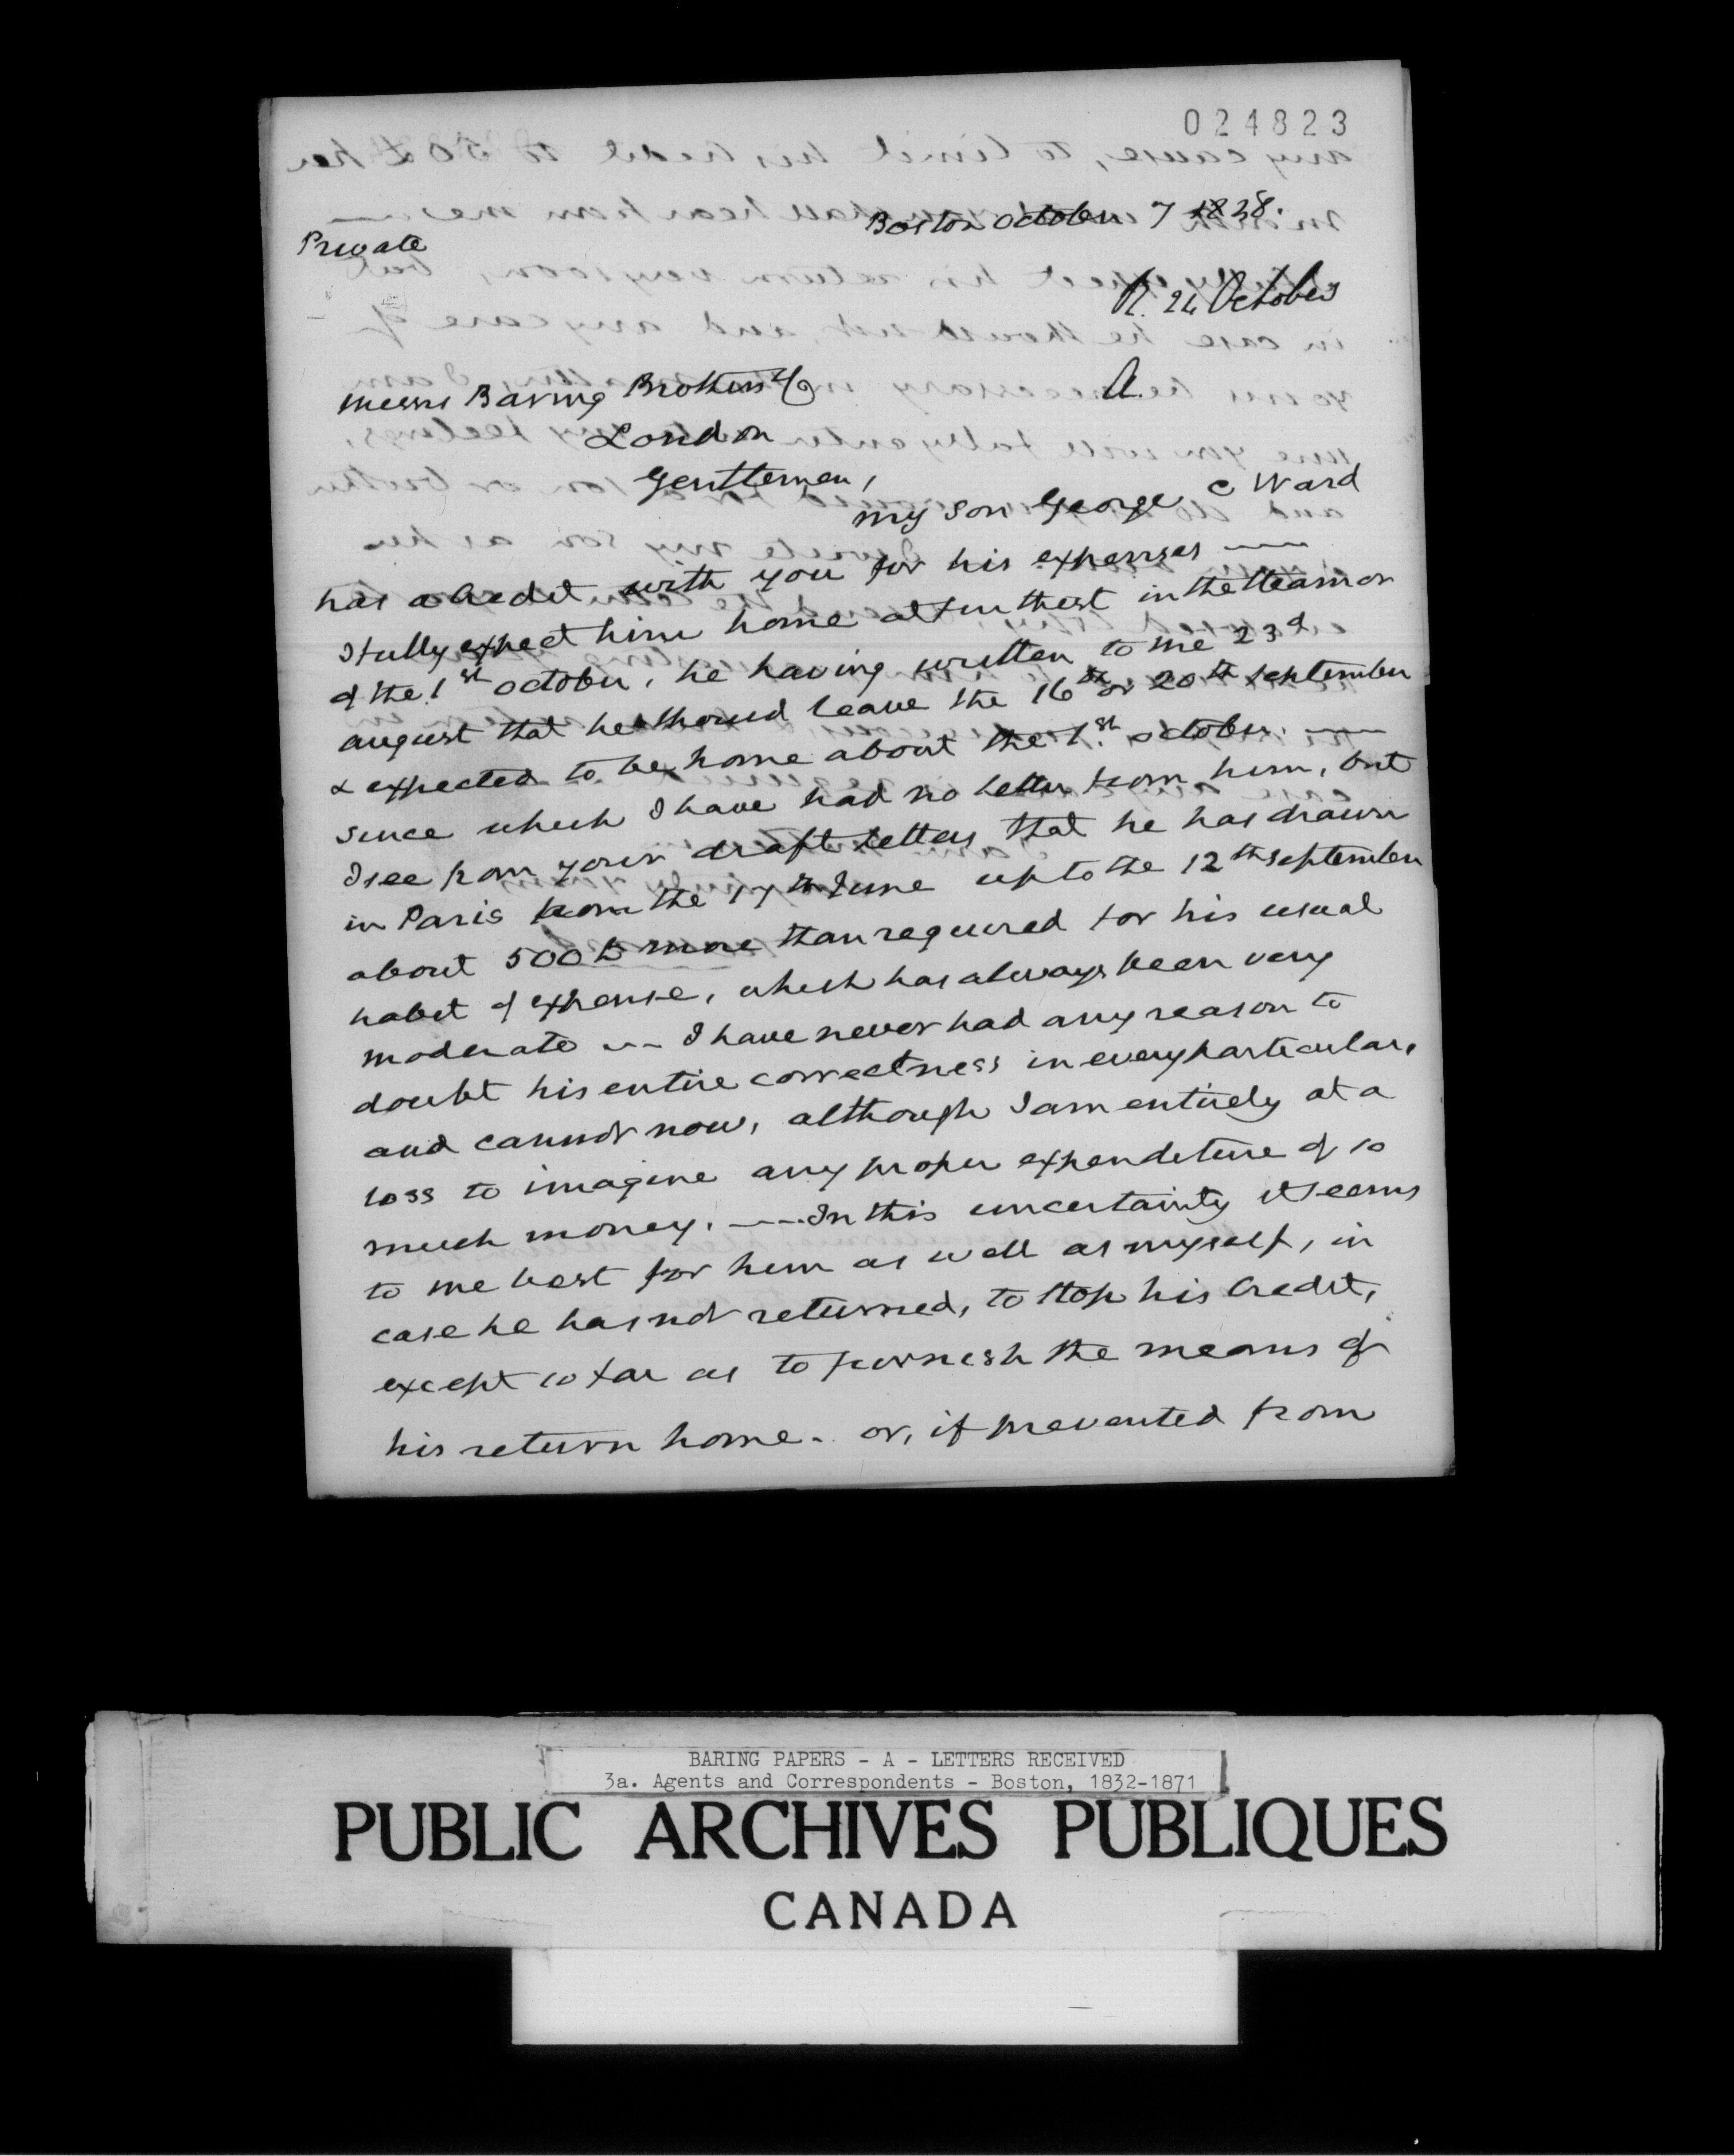 024823
Boston October 7 1838.
Private
R. 26 October
A.
Messrs Baring Brothers & Co
London
Gentlemen,
my son George C Ward
has a Credit with you for his expenses —
I fully expect him home at furthest in the Steamer
of the 1st October, he having written to me 23d
august that he should leave the 16th or 20th September
& expected to be home about the 1st October. —
since which I have had no letter from him, but
I see from your draft letters that he has drawn
in Paris from the 17th June up to the 12th September
about 500 £ more than required for his usual
habit of expense, which has always been very
moderate — I have never had any reason to
doubt his entire correctness in every particular,
and cannot now, although I am entirely at a
loss to imagine any proper expenditure of so
much money. — In this uncertainty it seems
to me best for him as well as myself, in
case he has not returned, to stop his Credit,
except so far as to furnish the means of
his return home. or, if prevented from
BARING PAPERS - A - LETTERS RECEIVED
3a. Agents and Correspondents - Boston, 1832-1871
PUBLIC ARCHIVES PUBLIQUES
CANADA